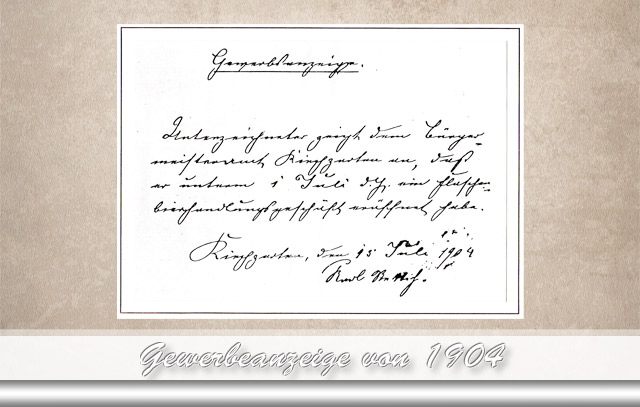 Gewerbsanzeige.
Unterzeichneter zeigt dem Bürger-
meisteramt Kirchzarten an, daß
er unterm 1 Juli d. J. ein Flaschen-
bierhandlungsgeschäft eröffnet habe.
Kirchzarten, den 15 Juli 1904
Karl Rettich.
Gewerbeanzeige von 1904